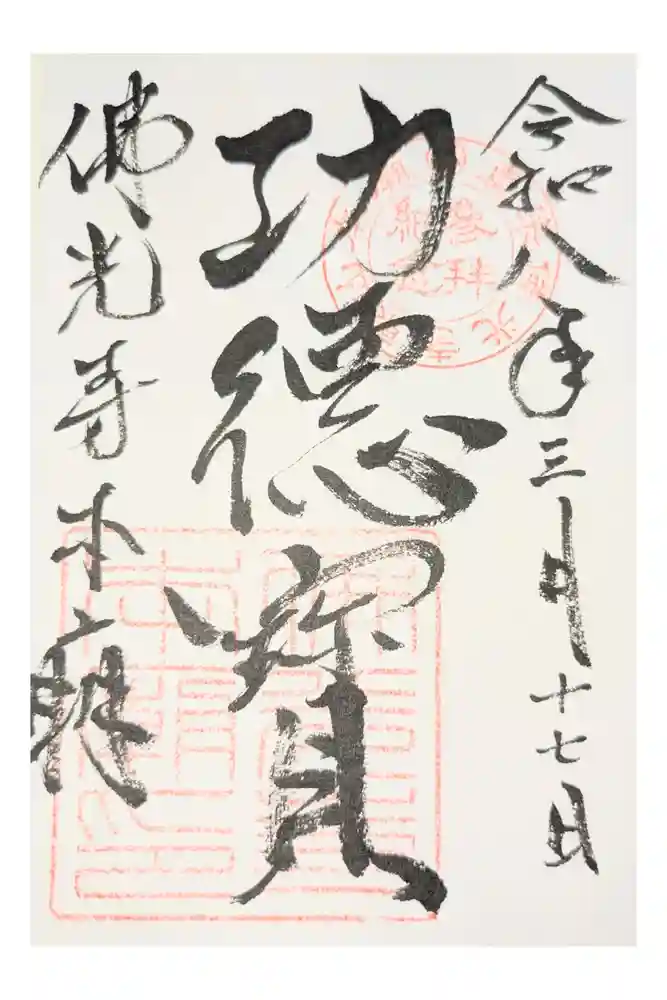 令和八年三月十七日
功徳寳
佛光寺本廟
参拝
紀念